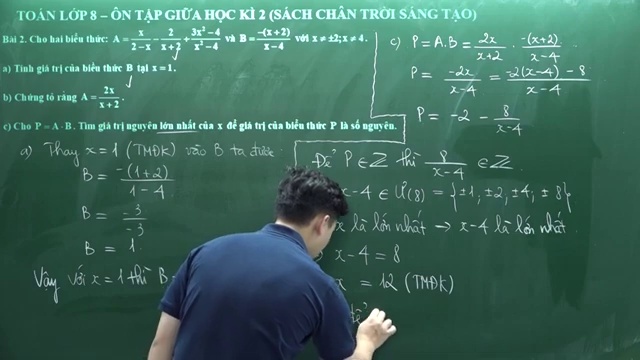 TOÁN LỚP 8 – ÔN TẬP GIỮA HỌC KÌ 2 (SÁCH CHÂN TRỜI SÁNG TẠO)
Bài 2. Cho hai biểu thức: A = x/(2−x) − 2/(x+2) + (3x²−4)/(x²−4) và B = −(x+2)/(x−4) với x ≠ ±2; x ≠ 4.
a) Tính giá trị của biểu thức B tại x = 1.
b) Chứng tỏ rằng A = 2x/(x+2).
c) Cho P = A · B. Tìm giá trị nguyên lớn nhất của x để giá trị của biểu thức P là số nguyên.
a) Thay x = 1 (TMĐK) vào B ta được
B = −(1+2)/(1−4)
B = −3/−3
B = 1.
Vậy với x = 1 thì B =
c) P = A.B = 2x/(x+2) · −(x+2)/(x−4)
P = −2x/(x−4) = (−2(x−4) − 8)/(x−4)
P = −2 − 8/(x−4)
Để P ∈ Z thì 8/(x−4) ∈ Z
x−4 ∈ Ư(8) = {±1, ±2, ±4, ±8}
x là lớn nhất → x−4 là lớn nhất
x − 4 = 8
x = 12 (TMĐK)
để